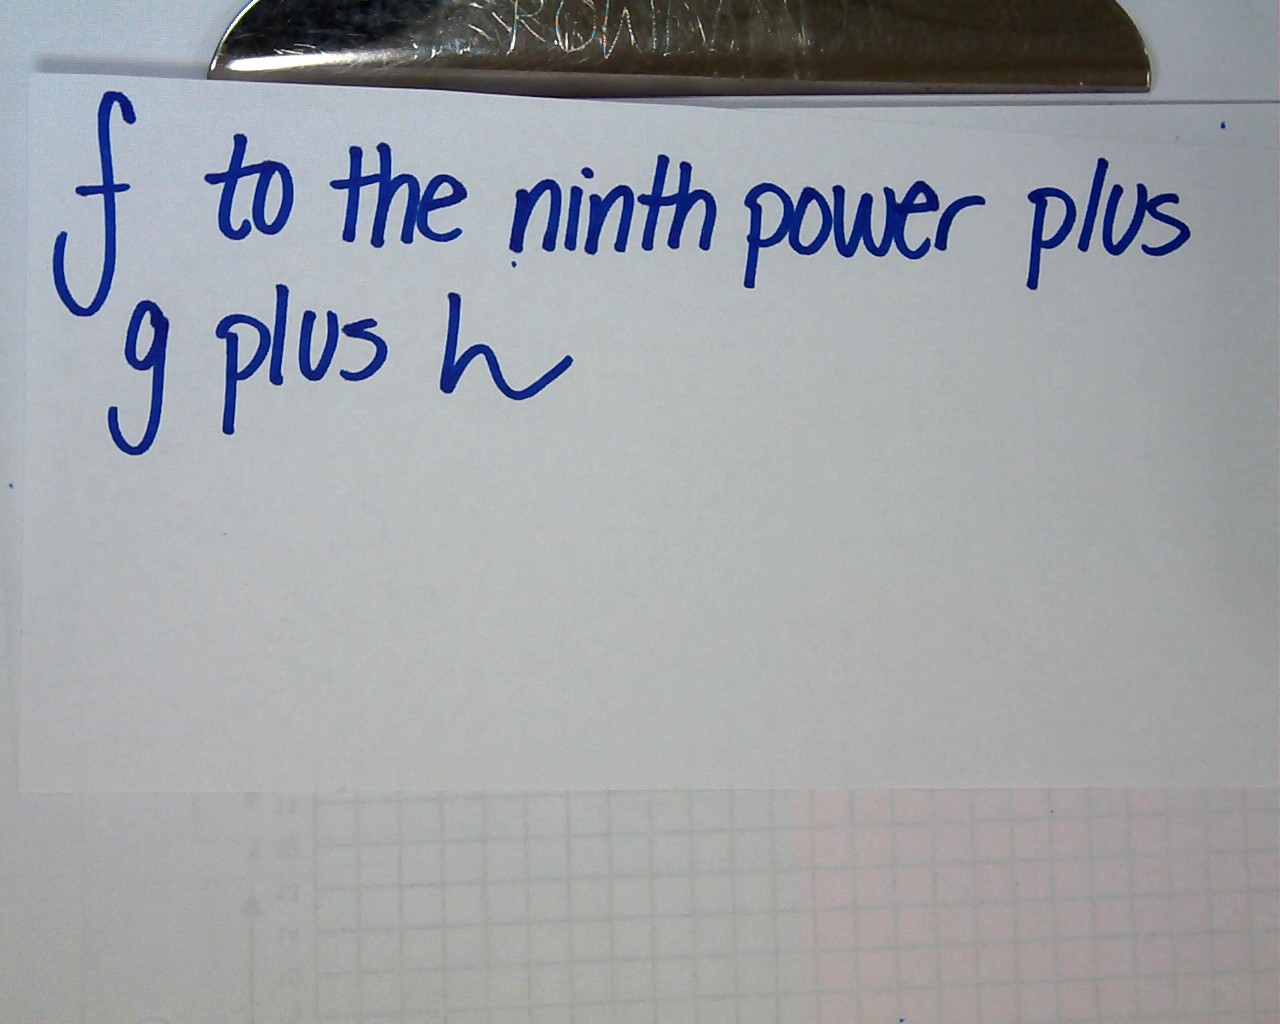 f to the ninth power plus
g plus h